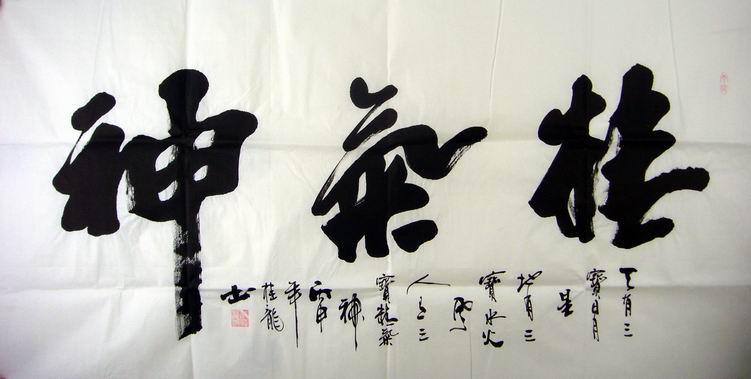 精氣神
天有三
寶日月
星
地有三
寶水火
風
人有三
寶精氣
神
丙申
年
桂龍
書